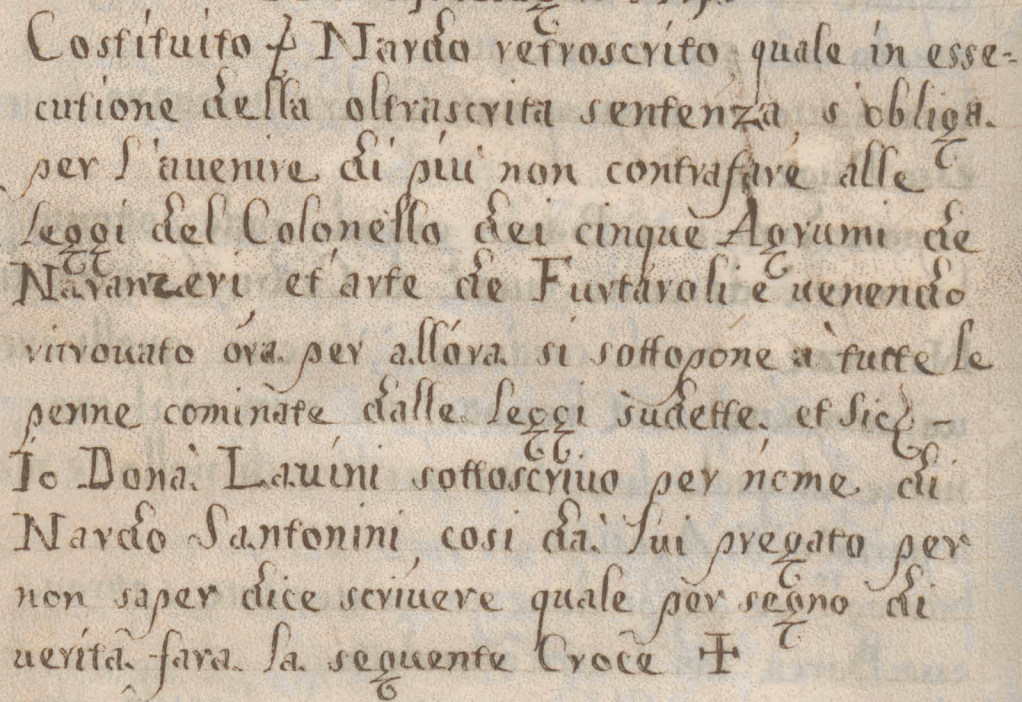 Costituito ꝑ Nardo retroscrito quale in esse-
cutione della oltrascrita sentenza, s'obliga
per l'avenire di più non contrafare alle
Leggi del Colonello dei cinque Agrumi de
Naranzeri et arte de Furtaroli e venendo
ritrovato óra per allóra si sottopone à tutte le
penne cominate dalle Leggi sudette. et sic -
Io Donà Lavini sottoscrivo per nome di
Nardo Santonini, cosi dà lui pregato per
non saper dice scrivere quale per segno di
verità farà la seguente Croce ✝